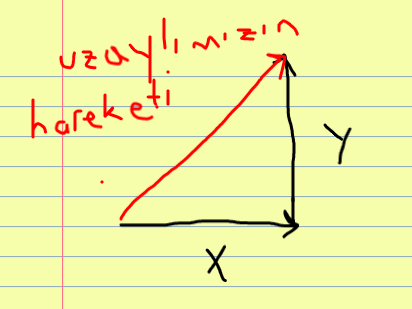 uzaylımızın
hareketi
Y
X